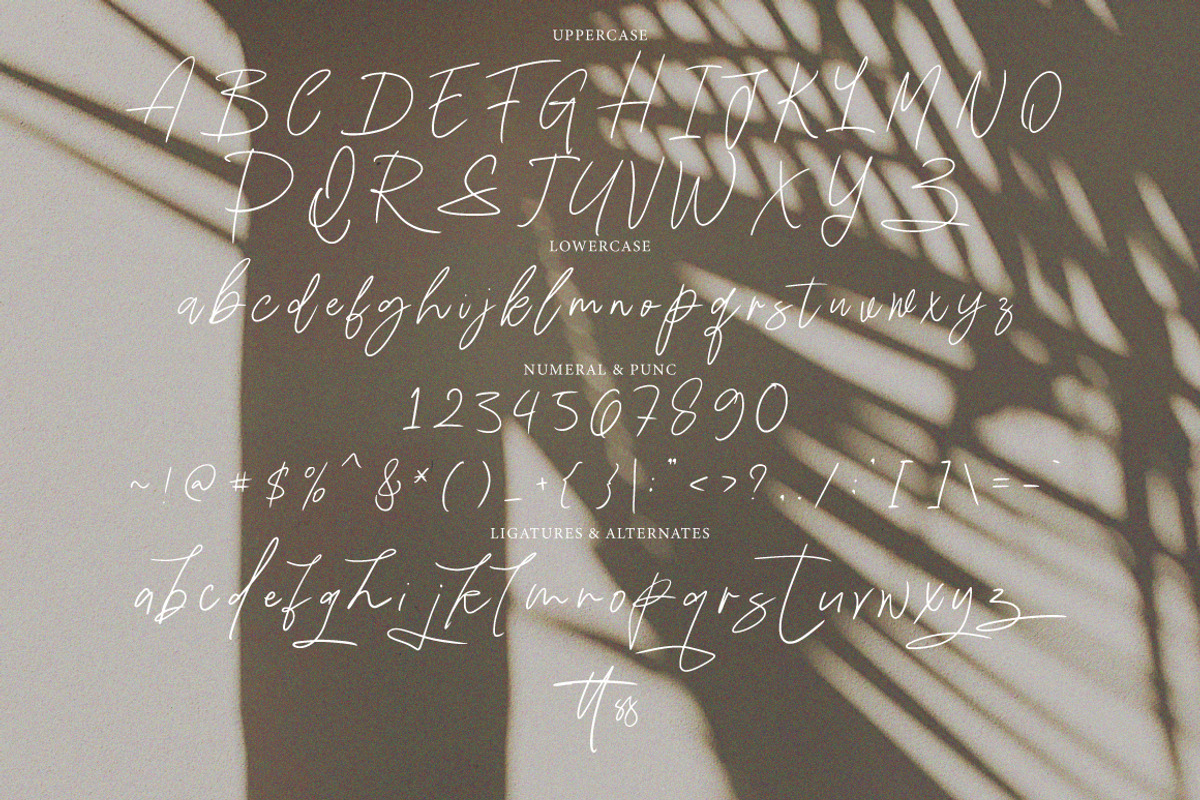 UPPERCASE
A B C D E F G H I J K L M N O
P Q R S T U V W X Y Z
LOWERCASE
a b c d e f g h i j k l m n o p q r s t u v w x y z
NUMERAL & PUNC
1 2 3 4 5 6 7 8 9 0
~ ! @ # $ % ^ & * ( ) _ + { } | : " < > ? , . / ; ' [ ] \ = - `
LIGATURES & ALTERNATES
a b c d e f g h i j k l m n o p q r s t u v w x y z
tt ss